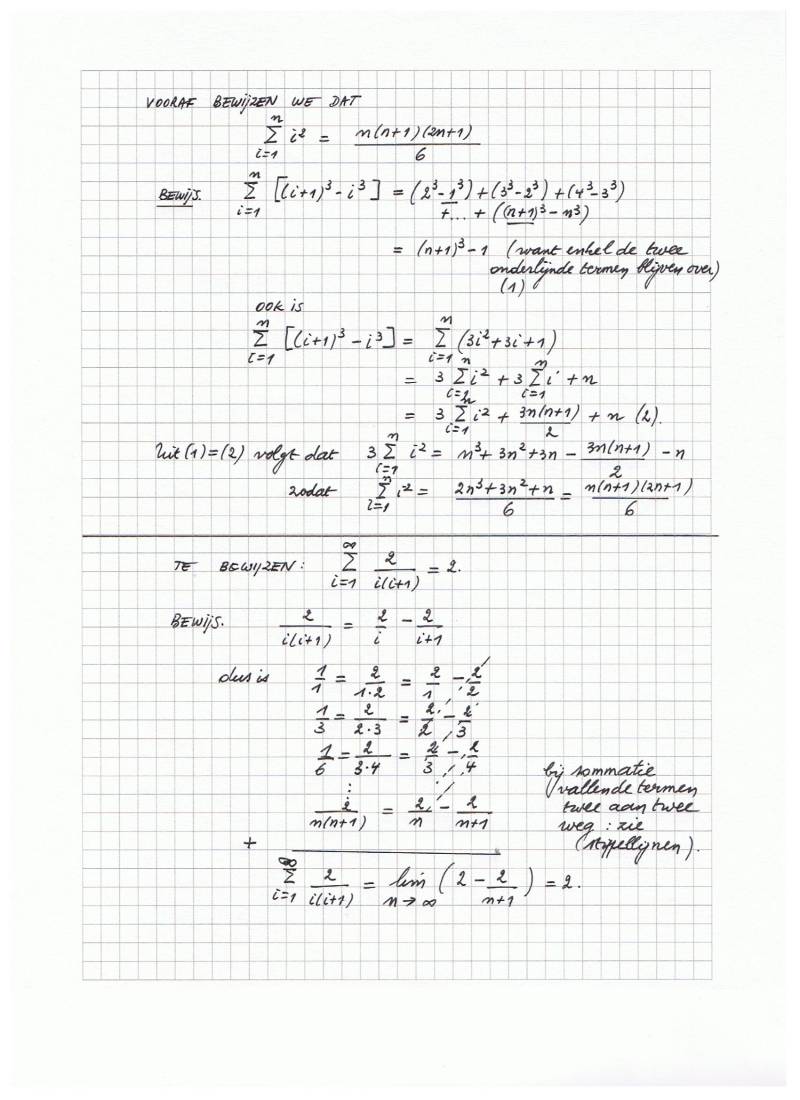 VOORAF BEWIJZEN WE DAT
\sum_{i=1}^{n} i^2 = \frac{n(n+1)(2n+1)}{6}
BEWIJS. \sum_{i=1}^{n} [(i+1)^3 - i^3] = (2^3 - 1^3) + (3^3 - 2^3) + (4^3 - 3^3)
+ ... + ((n+1)^3 - n^3)
= (n+1)^3 - 1 (want enkel de twee
onderlijnde termen blijven over)
(1)
ook is
\sum_{i=1}^{n} [(i+1)^3 - i^3] = \sum_{i=1}^{n} (3i^2 + 3i + 1)
= 3 \sum_{i=1}^{n} i^2 + 3 \sum_{i=1}^{n} i + n
= 3 \sum_{i=1}^{n} i^2 + \frac{3n(n+1)}{2} + n (2).
Uit (1) = (2) volgt dat 3 \sum_{i=1}^{n} i^2 = n^3 + 3n^2 + 3n - \frac{3n(n+1)}{2} - n
zodat \sum_{i=1}^{n} i^2 = \frac{2n^3 + 3n^2 + n}{6} = \frac{n(n+1)(2n+1)}{6}
TE BEWIJZEN: \sum_{i=1}^{\infty} \frac{2}{i(i+1)} = 2.
BEWIJS. \frac{2}{i(i+1)} = \frac{2}{i} - \frac{2}{i+1}
dus is \frac{1}{1} = \frac{2}{1·2} = \frac{2}{1} - \frac{2}{2}
\frac{1}{3} = \frac{2}{2·3} = \frac{2}{2} - \frac{2}{3}
\frac{1}{6} = \frac{2}{3·4} = \frac{2}{3} - \frac{2}{4}
⋮
\frac{2}{n(n+1)} = \frac{2}{n} - \frac{2}{n+1}
bij sommatie
vallende termen
twee aan twee
weg : zie
(stippellijnen).
+
\sum_{i=1}^{\infty} \frac{2}{i(i+1)} = \lim_{n→∞} (2 - \frac{2}{n+1}) = 2.